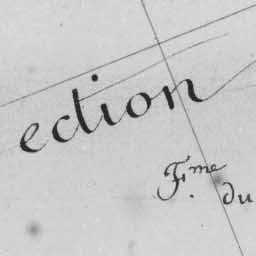 ection
F.me du